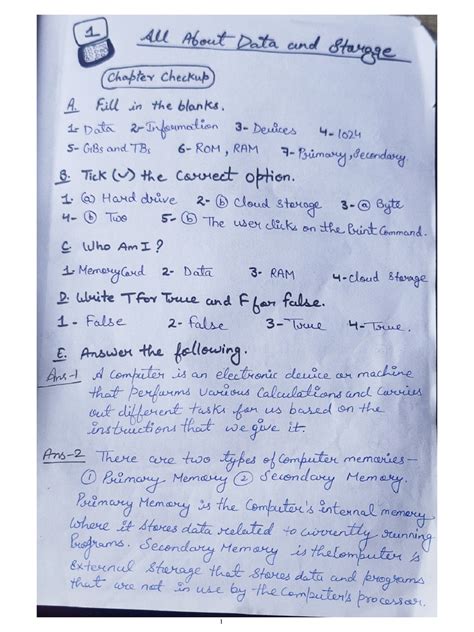 1 All About Data and Storage
Chapter Checkup
A. Fill in the blanks.
1- Data 2- Information 3- Devices 4- 1024
5- GBs and TBs 6- ROM, RAM 7- Primary, Secondary
B. Tick (✓) the Correct option.
1- (a) Hard drive 2- (b) Cloud Storage 3- (a) Byte
4- (b) Two 5- (b) The user clicks on the Print Command.
C. Who Am I?
1- Memory Card 2- Data 3- RAM 4- Cloud Storage
D. Write T for True and F for false.
1- False 2- False 3- True 4- True.
E. Answer the following.
Ans-1 A Computer is an electronic device or machine
that performs various Calculations and Carries
out different tasks for us based on the
instructions that we give it.
Ans-2 There are two types of Computer memories-
① Primary Memory ② Secondary Memory.
Primary Memory is the Computer's internal memory
where it stores data related to currently running
Programs. Secondary Memory is the Computer's
External Storage that stores data and programs
that are not in use by the Computer's processor.
1